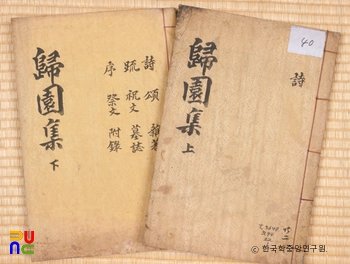 40
詩
歸園集 上
詩 頌 雜著
疏 祝文 墓誌
序 祭文 附錄
歸園集 下
ⓒ 한국학중앙연구원